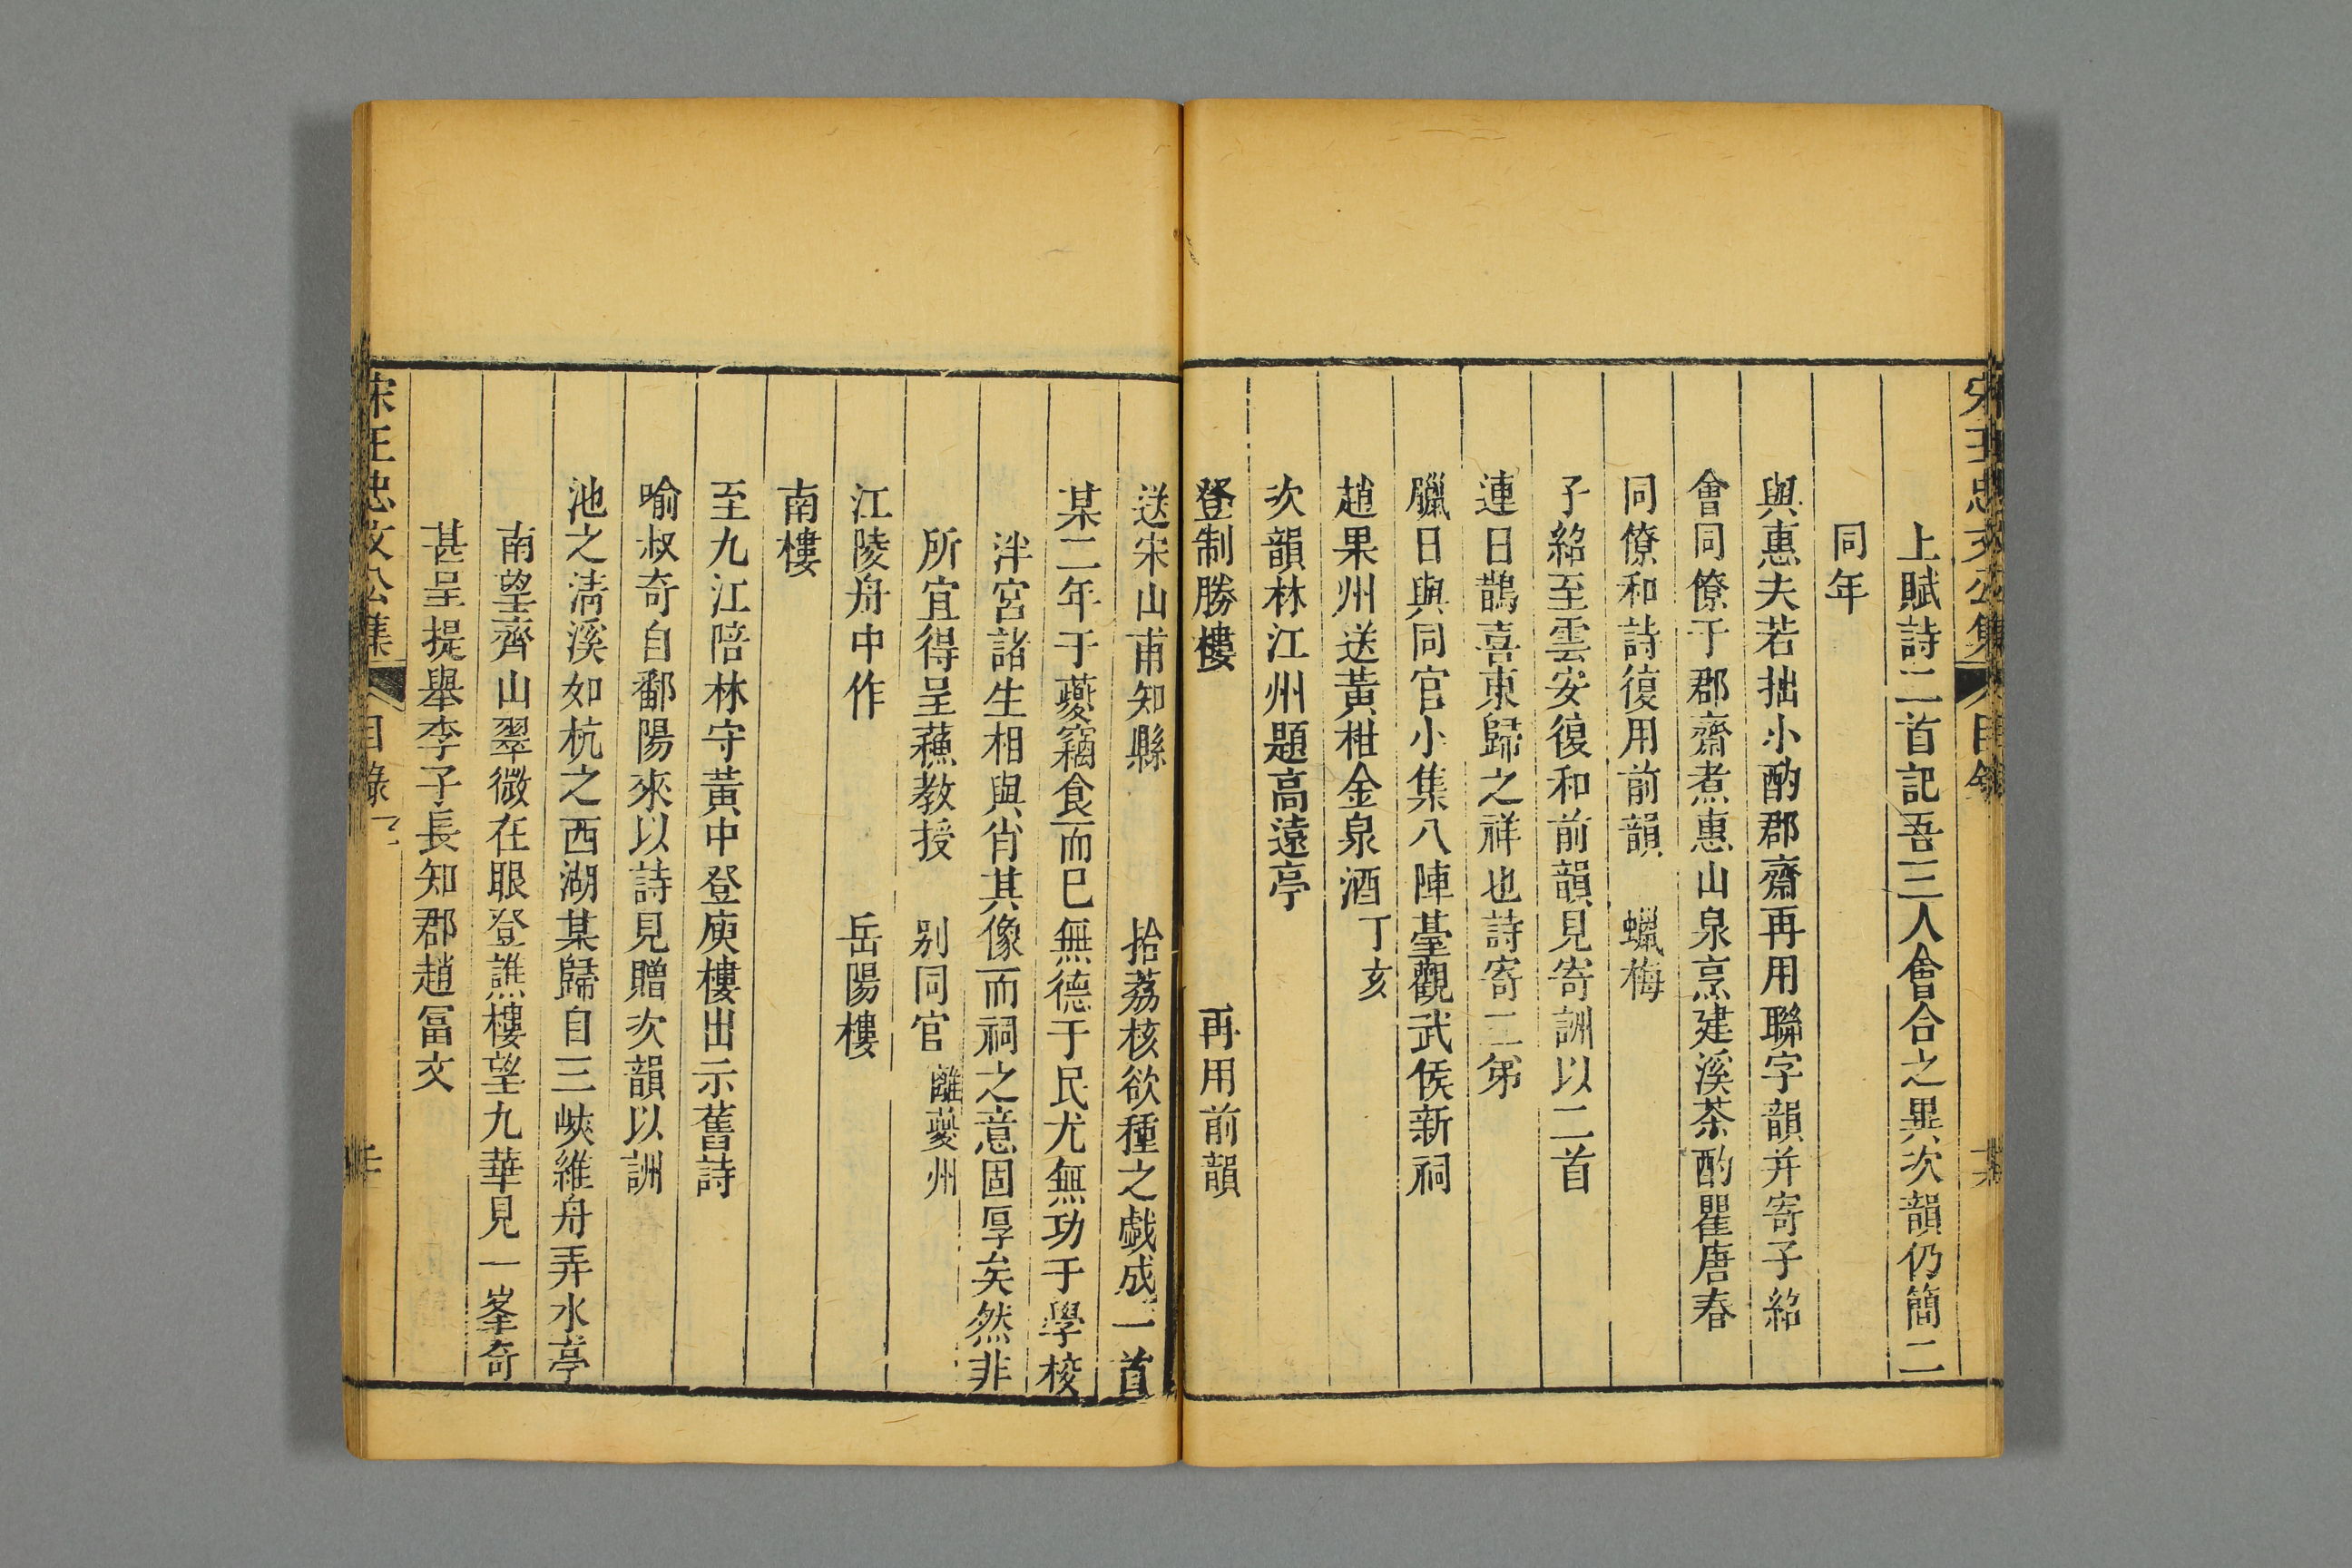 上賦詩二首記吾三人會合之異次韻仍簡二
同年
與惠夫若拙小酌郡齋再用聯字韻并寄子紹
會同僚于郡齋煮惠山泉烹建溪茶酌瞿唐春
同僚和詩復用前韻　蠟梅
子紹至雲安復和前韻見寄詶以二首
連日鵲喜東歸之祥也詩寄二弟
臘日與同官小集八陣臺觀武侯新祠
趙果州送黃柑金泉酒丁亥
次韻林江州題高遠亭
登制勝樓　再用前韻
送宋山甫知縣　拾荔核欲種之戱成一首
某二年于夔竊食而巳無德于民尤無功于學校
泮宮諸生相與肖其像而祠之意固厚矣然非
所宜得呈蘓教授　别同官　離夔州
江陵舟中作　岳陽樓
南樓
至九江陪林守黃中登庾樓出示舊詩
喻叔奇自鄱陽來以詩見贈次韻以詶
池之淸溪如杭之西湖某歸自三峽維舟弄水亭
南望齊山翠微在眼登譙樓望九華見一峯奇
甚呈提舉李子長知郡趙冨文
宋王忠文公集　目錄